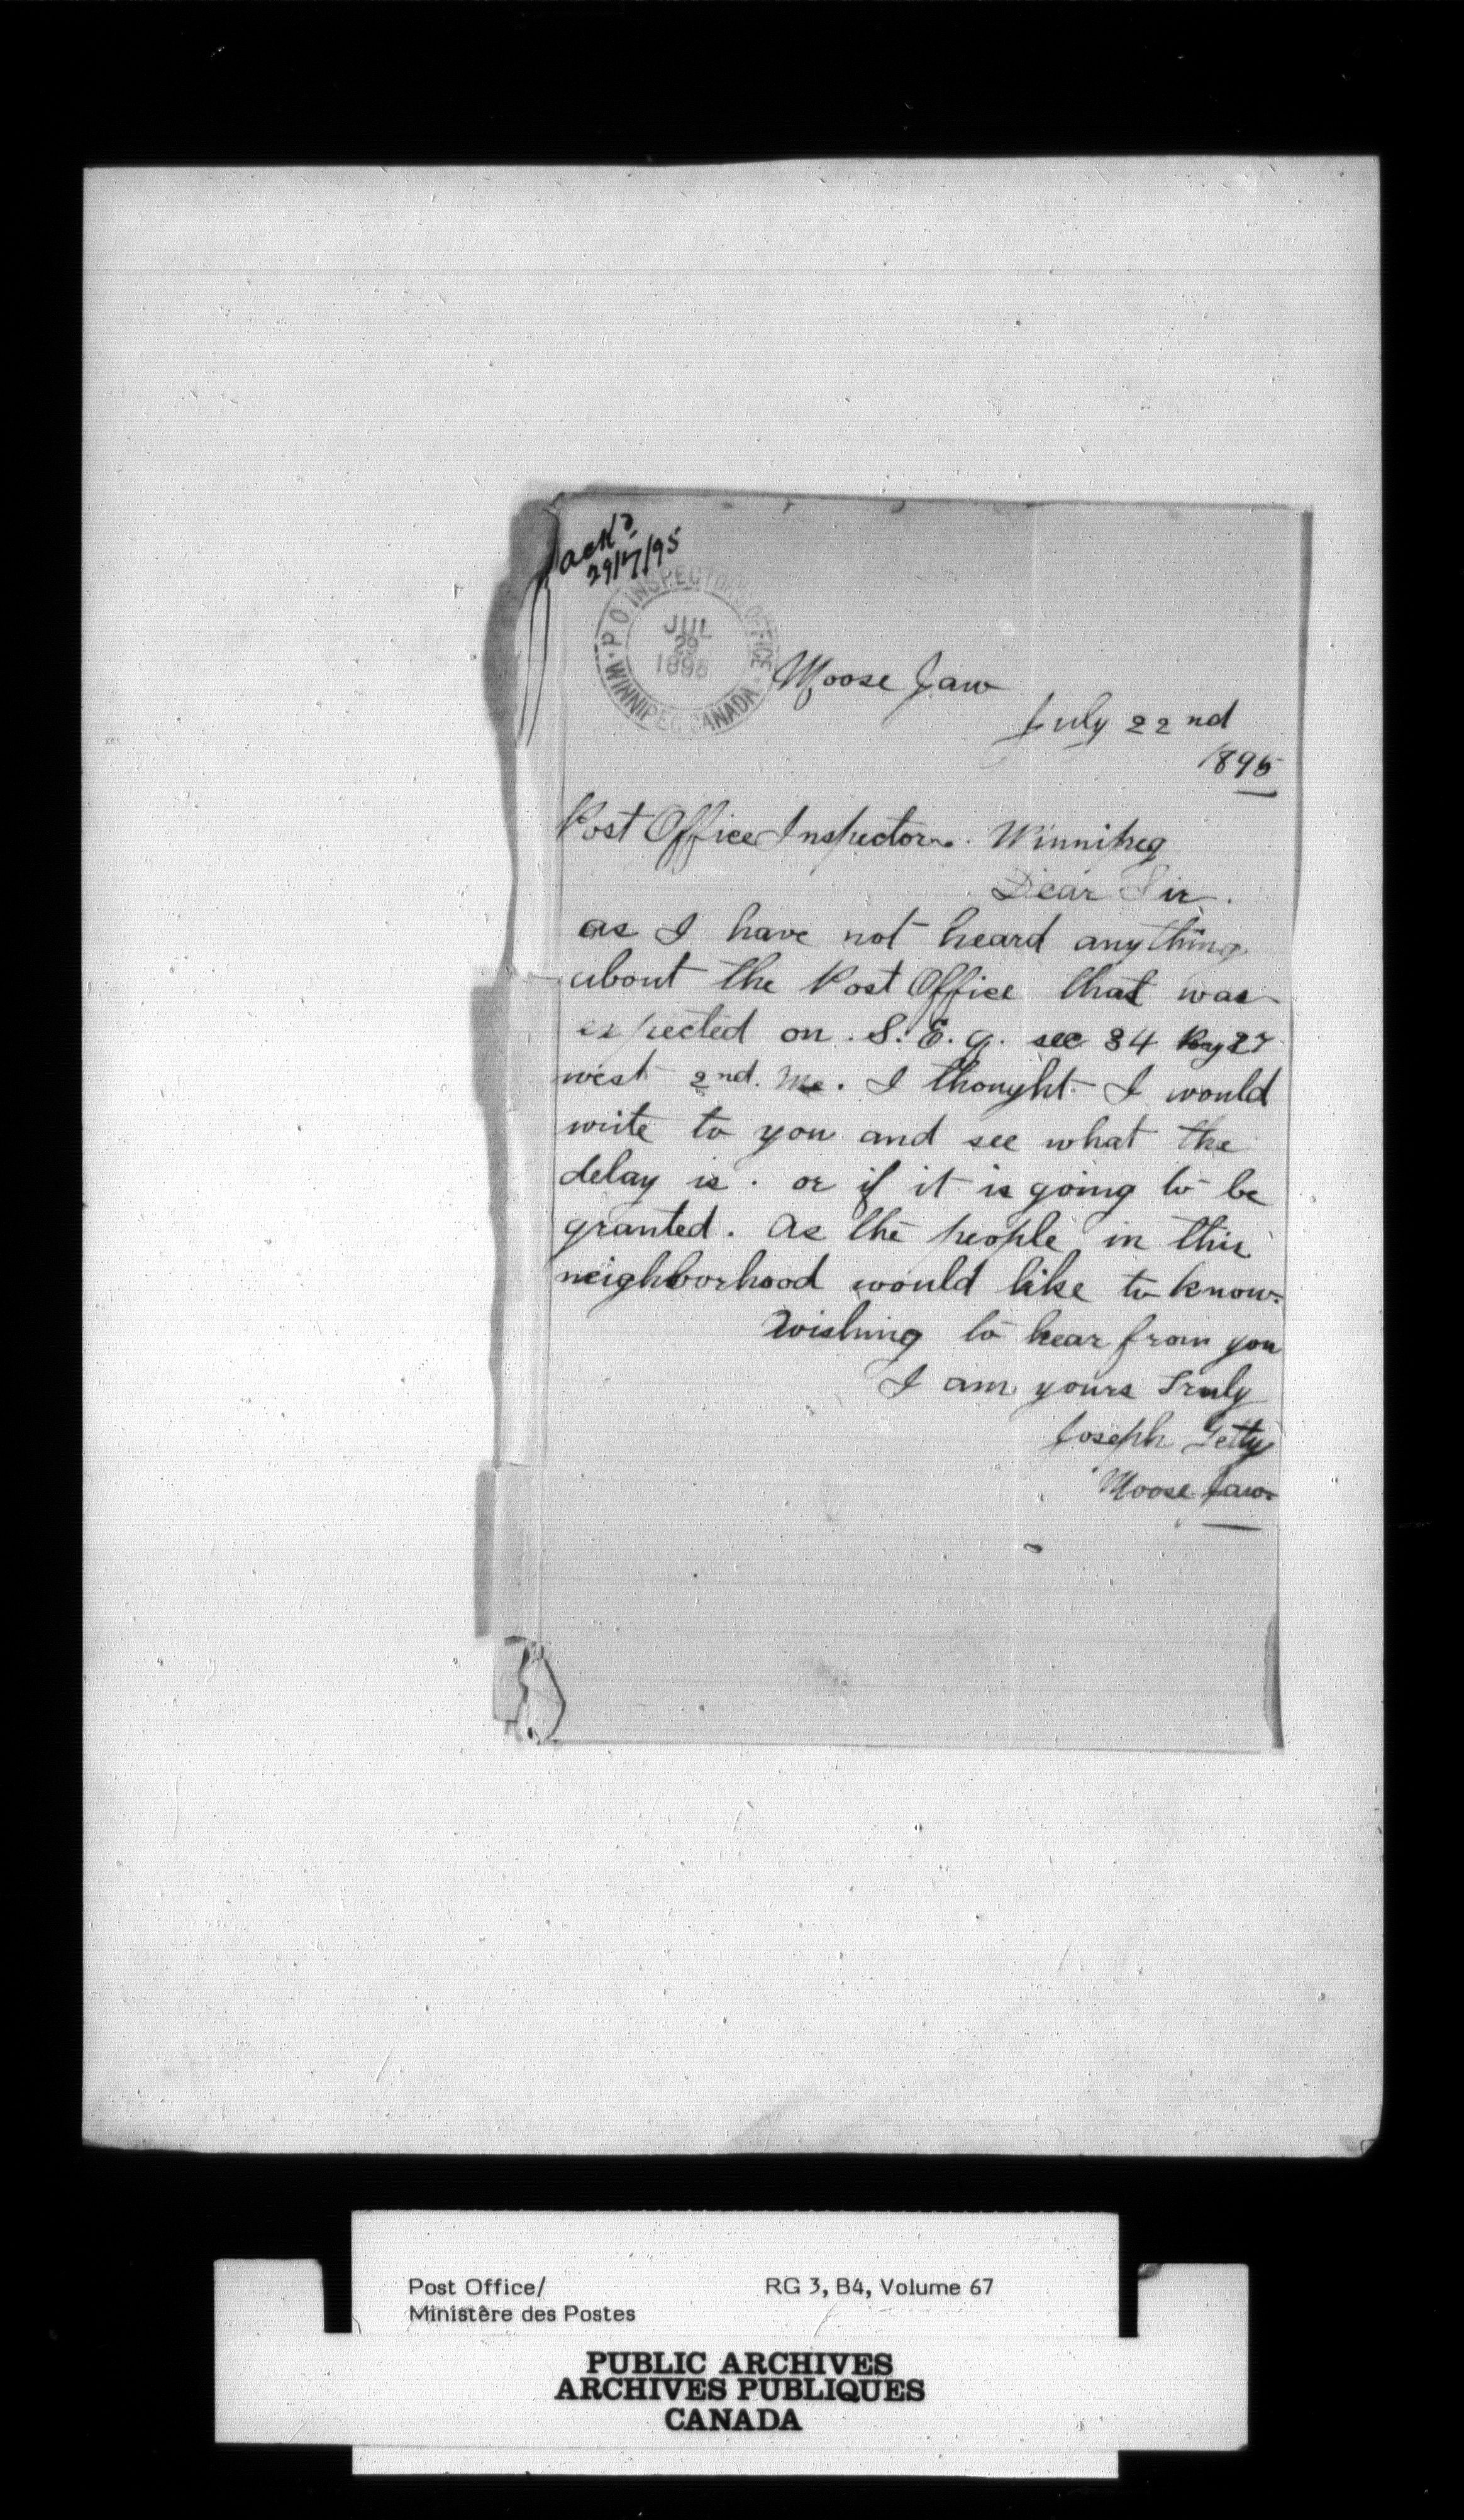 ack'd
29/7/95
P.O. INSPECTOR'S OFFICE
JUL
29
1895
WINNIPEG CANADA
Moose Jaw
July 22nd
1895
Post Office Inspector. Winnipeg
Dear Sir.
as I have not heard anything
about the Post Office that was
expected on S. E. q. sec 34 Rag 27
west 2nd. Me. I thought I would
write to you and see what the
delay is. or if it is going to be
granted. as the people in this
neighborhood would like to know.
Wishing to hear from you
I am yours Truly
Joseph Getty
Moose Jaw.
Post Office/
Ministère des Postes
RG 3, B4, Volume 67
PUBLIC ARCHIVES
ARCHIVES PUBLIQUES
CANADA